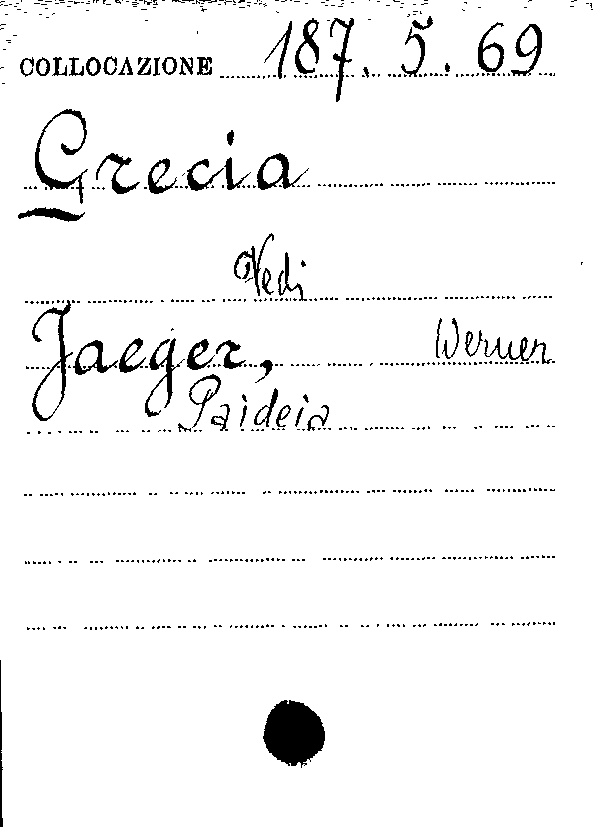 COLLOCAZIONE 187. 5. 69
Grecia
Vedi
Jaeger, Werner
Paideia